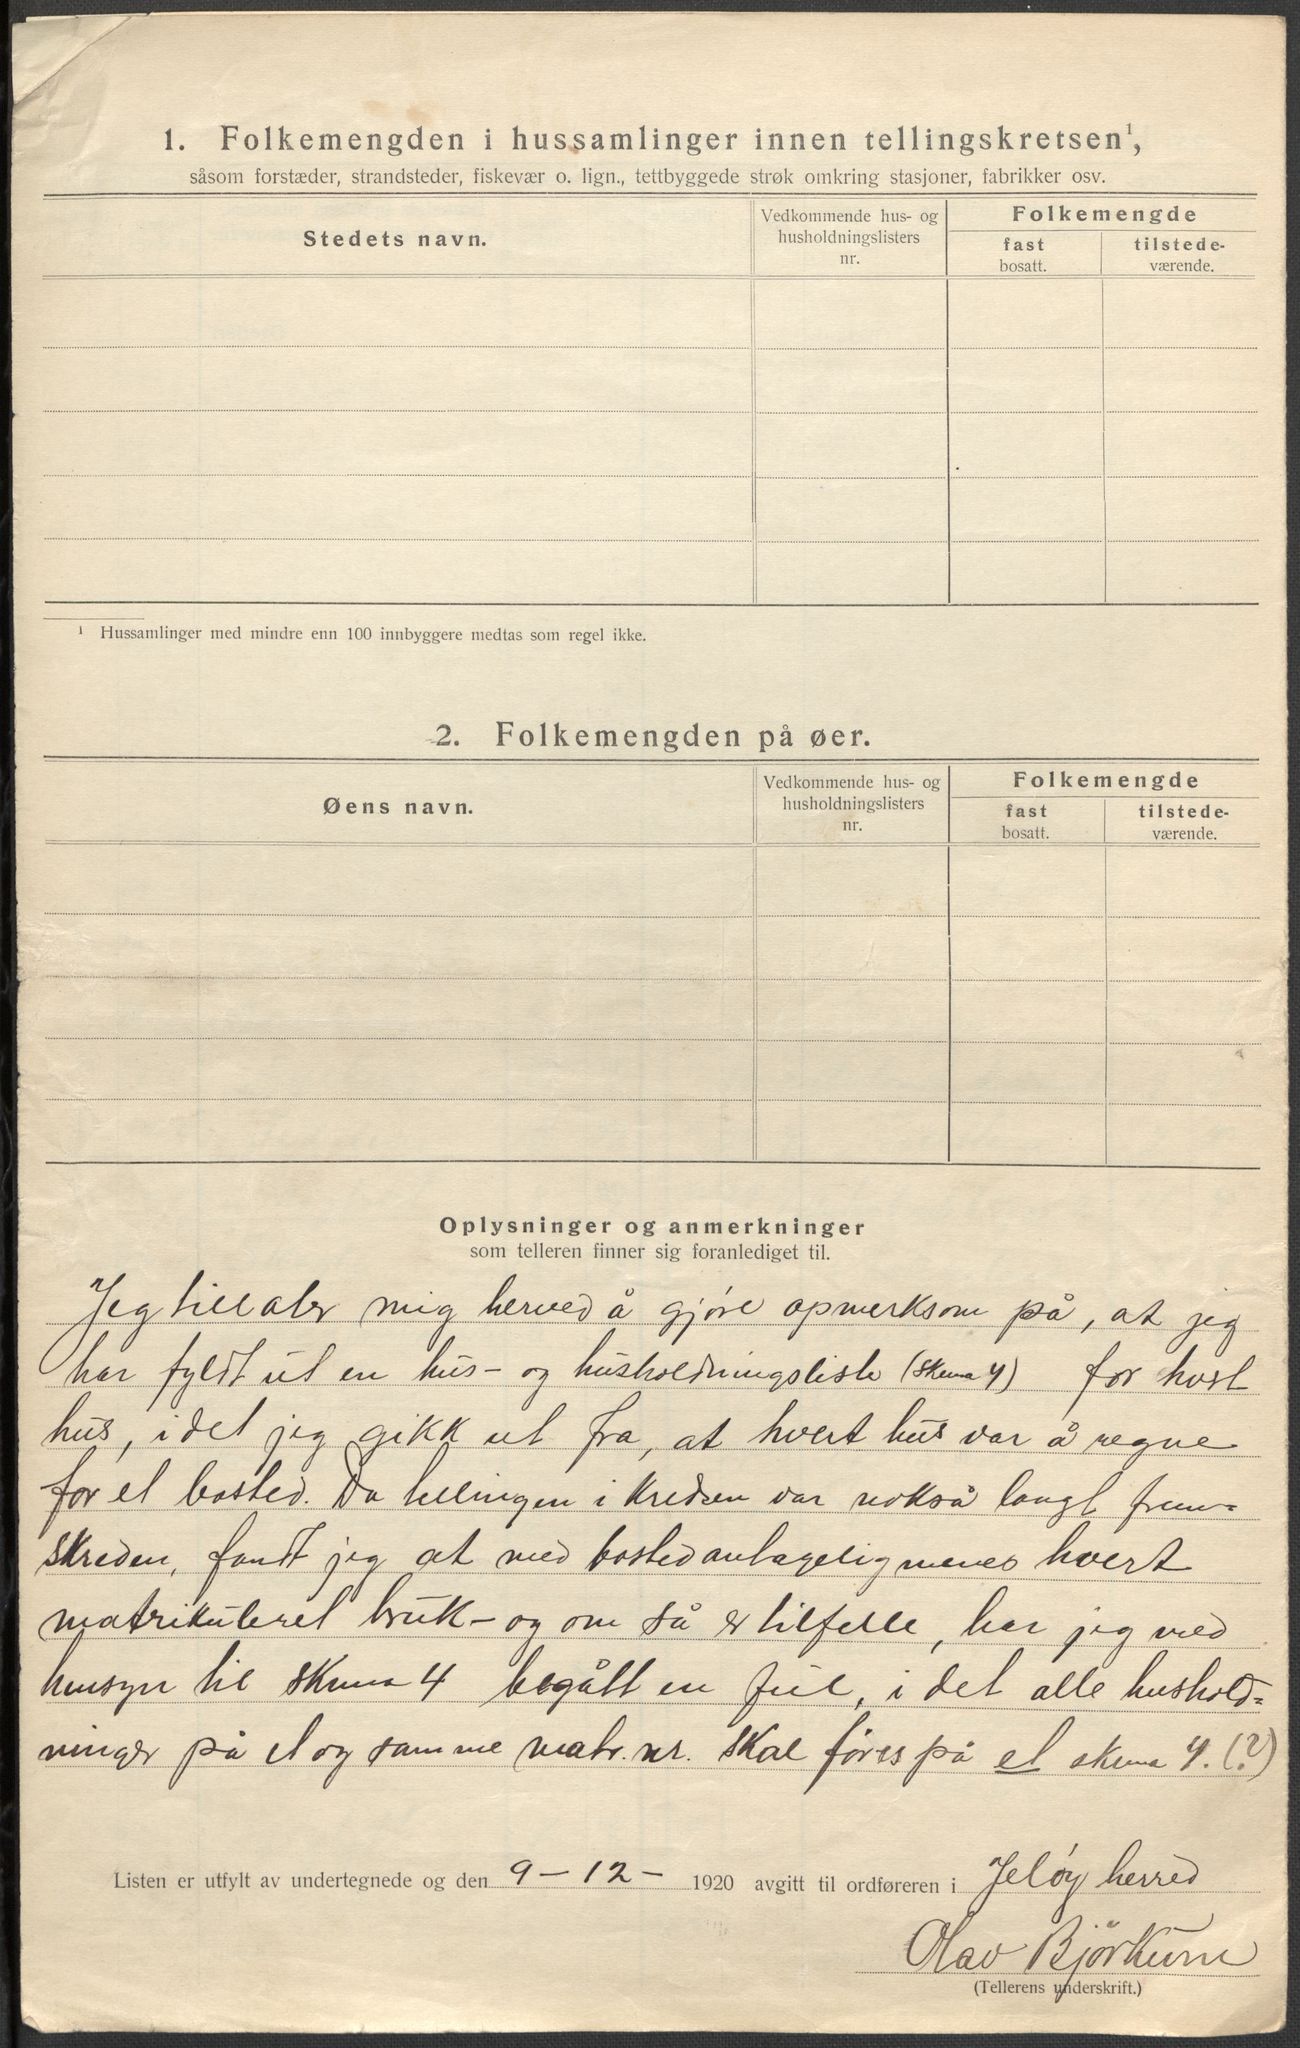 1. Folkemengden i hussamlinger innen tellingskretsen¹,
såsom forstæder, strandsteder, fiskevær o. lign., tettbyggede strøk omkring stasjoner, fabrikker osv.
Stedets navn.
Vedkommende hus- og
husholdningslisters
nr.
Folkemengde
fast
bosatt.
tilstede-
værende.
¹ Hussamlinger med mindre enn 100 innbyggere medtas som regel ikke.
2. Folkemengden på øer.
Øens navn.
Vedkommende hus- og
husholdningslisters
nr.
Folkemengde
fast
bosatt.
tilstede-
værende.
Oplysninger og anmerkninger
som telleren finner sig foranlediget til.
Jeg tillater mig herved å gjöre opmerksom på, at jeg
har fyldt ut en hus- og husholdningsliste (skema 4) for hvert
hus, i det jeg gikk ut fra, at hvert hus var å regne
for et bosted. Da tellingen i kredsen var nokså langt frem-
skreden, fandt jeg at med bosted antagelig menes hvert
matrikuleret bruk - og om så er tilfelle, har jeg med
hensyn til skema 4 begått en feil, i det alle hushold-
ninger på et og samme matr. nr. skal föres på et skema 4. (?)
Listen er utfylt av undertegnede og den 9-12- 1920 avgitt til ordføreren i Jelöy herred
Olav Björkum
(Tellerens underskrift.)